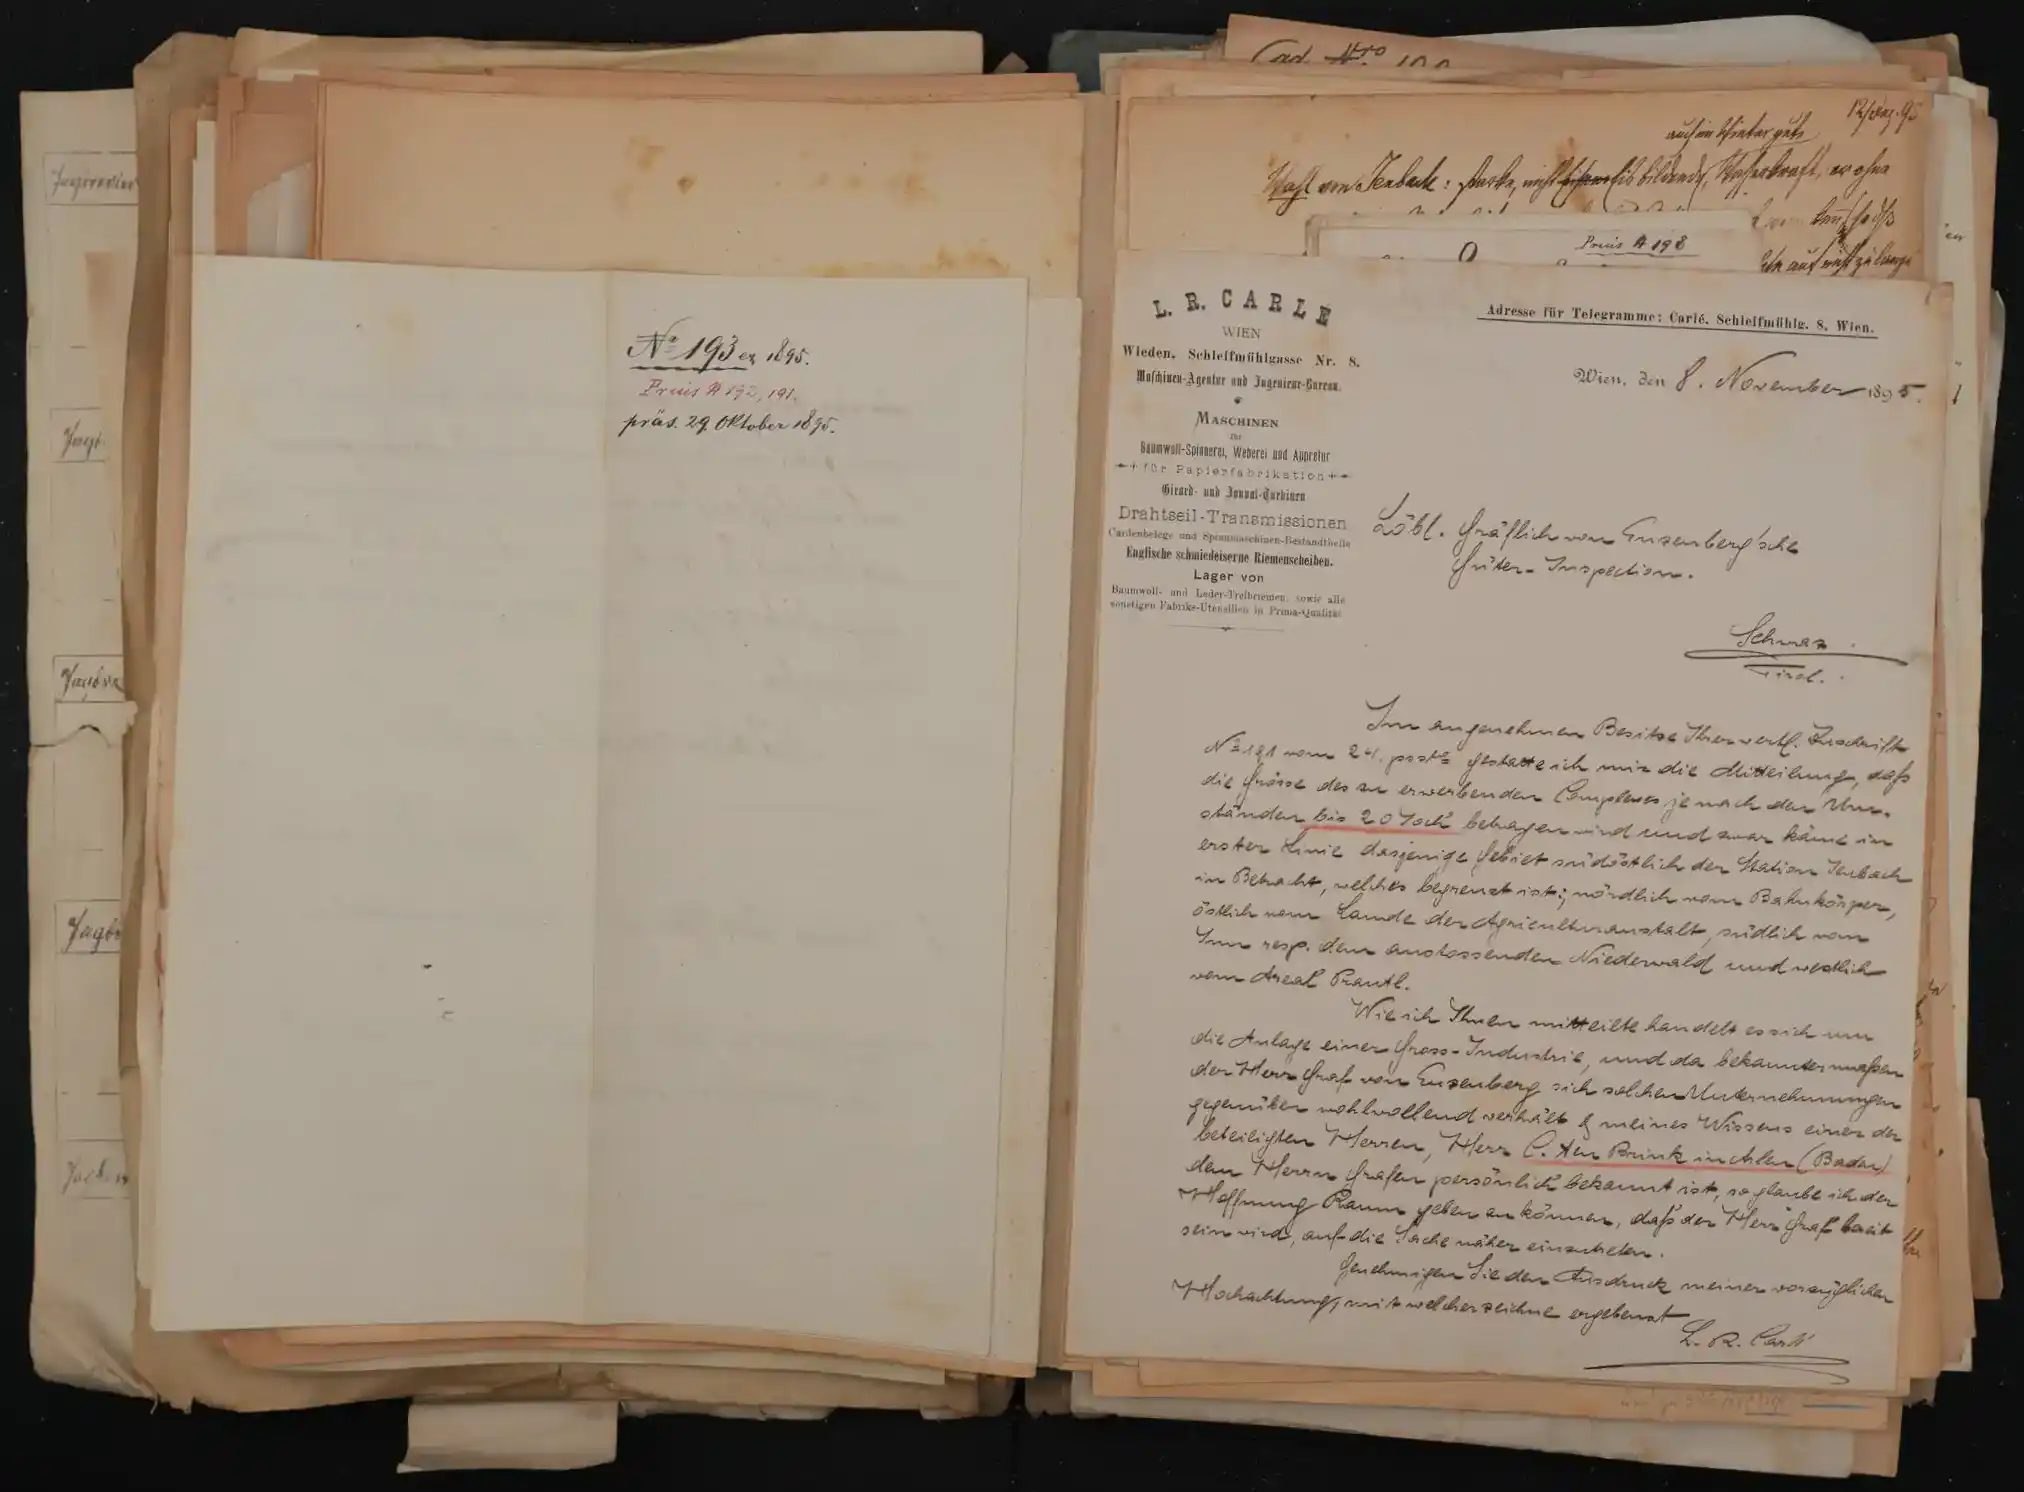 Jagdrevier
Jagd
Jagdre
Jagdr
Nº 193 ex 1895.
Präs № 192, 191.
präs. 29. Oktober 1895.
Cad. Nro
12/Dez. 95
auch im Winter gute
Wahl von Jenbach: starke, nicht Eis bildende, Wasserkraft, wo ohne
№ 198
L. R. CARLÉ
WIEN
Wieden, Schleifmühlgasse Nr. 8.
Maschinen-Agentur und Ingenieur-Bureau.
MASCHINEN
für
Baumwoll-Spinnerei, Weberei und Appretur
für Papierfabrikation
Girard- und Jonval-Turbinen
Drahtseil-Transmissionen
Cardenbelege und Spinnmaschinen-Bestandtheile
Englische schmiedeiserne Riemenscheiben.
Lager von
Baumwoll- und Leder-Treibriemen, sowie alle
sonstigen Fabriks-Utensilien in Prima-Qualität
Adresse für Telegramme: Carlé, Schleifmühlg. 8, Wien.
Wien, den 8. November 1895.
Löbl. Gräflich von Enzenberg'sche
Güter-Inspection.
Schwaz.
Tirol.
Im angenehmen Besitze Ihrer wertl. Zuschrift
Nº 191 vom 24. pssto gestatte ich mir die Mitteilung, daß
die Grösse des zu erwerbenden Complexes je nach den Um-
ständen bis 20 Joch betragen wird und zwar käme in
erster Linie dasjenige Gebiet südöstlich der Station Jenbach
in Betracht, welches begrenzt ist: nördlich vom Bahnkörper,
östlich vom Lande der Agriculturanstalt, südlich vom
Inn resp. dem anstossenden Niederwald und westlich
vom Areal Prantl.
Wie ich Ihnen mitteilte handelt es sich um
die Anlage einer Gross-Industrie, und da bekanntermaßen
der Herr Graf von Enzenberg sich solchen Unternehmungen
gegenüber wohlwollend verhält & meines Wissens einer der
beteiligten Herren, Herr C. ten Brink in Arlen (Baden)
dem Herrn Grafen persönlich bekannt ist, so glaube ich der
Hoffnung Raum geben zu können, daß der Herr Graf bereit
sein wird, auf die Sache näher einzutreten.
Genehmigen Sie den Ausdruck meiner vorzüglichen
Hochachtung, mit welcher zeichne ergebenst
L. R. Carlé